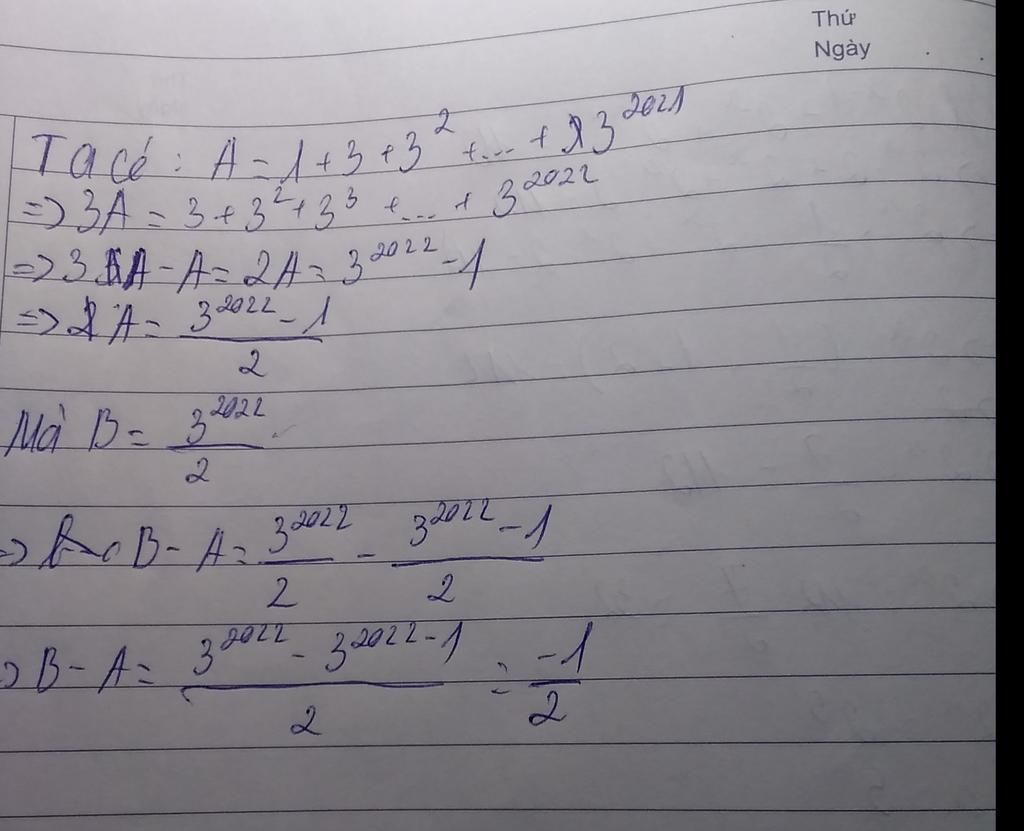 Thứ
Ngày
Ta có: A = 1 + 3 + 3^2 + ... + 3^2021
=> 3A = 3 + 3^2 + 3^3 + ... + 3^2022
=> 3A - A = 2A = 3^2022 - 1
=> A = (3^2022 - 1)/2
Mà B = 3^2022/2
=> B - A = 3^2022/2 - (3^2022 - 1)/2
=> B - A = (3^2022 - 3^2022 - 1)/2 = -1/2